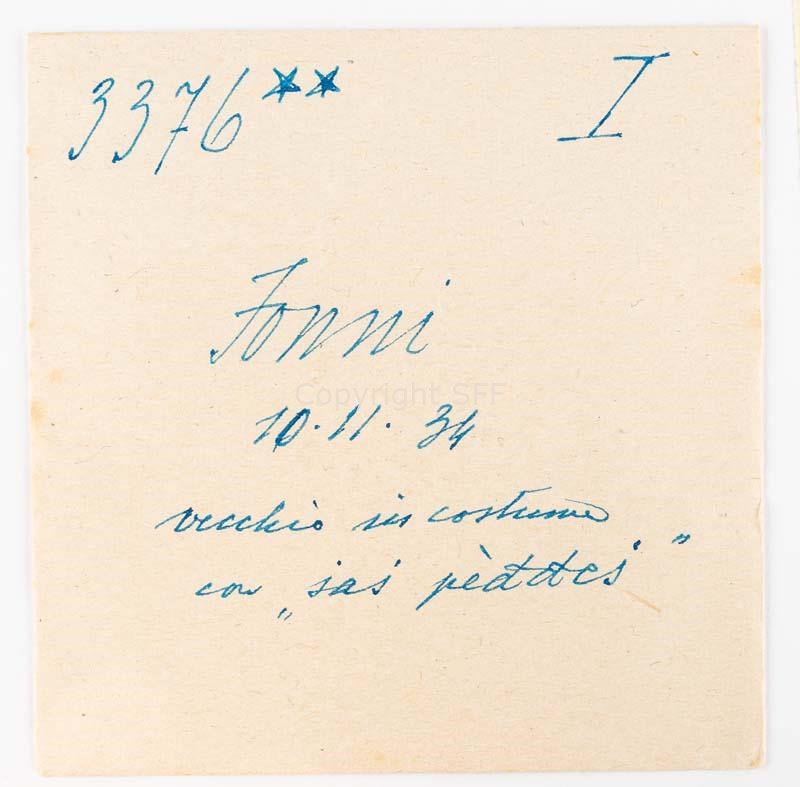 3376** I
Fonni
Copyright SFF
10.11.34
vecchio in costume
con „sas pèddes"